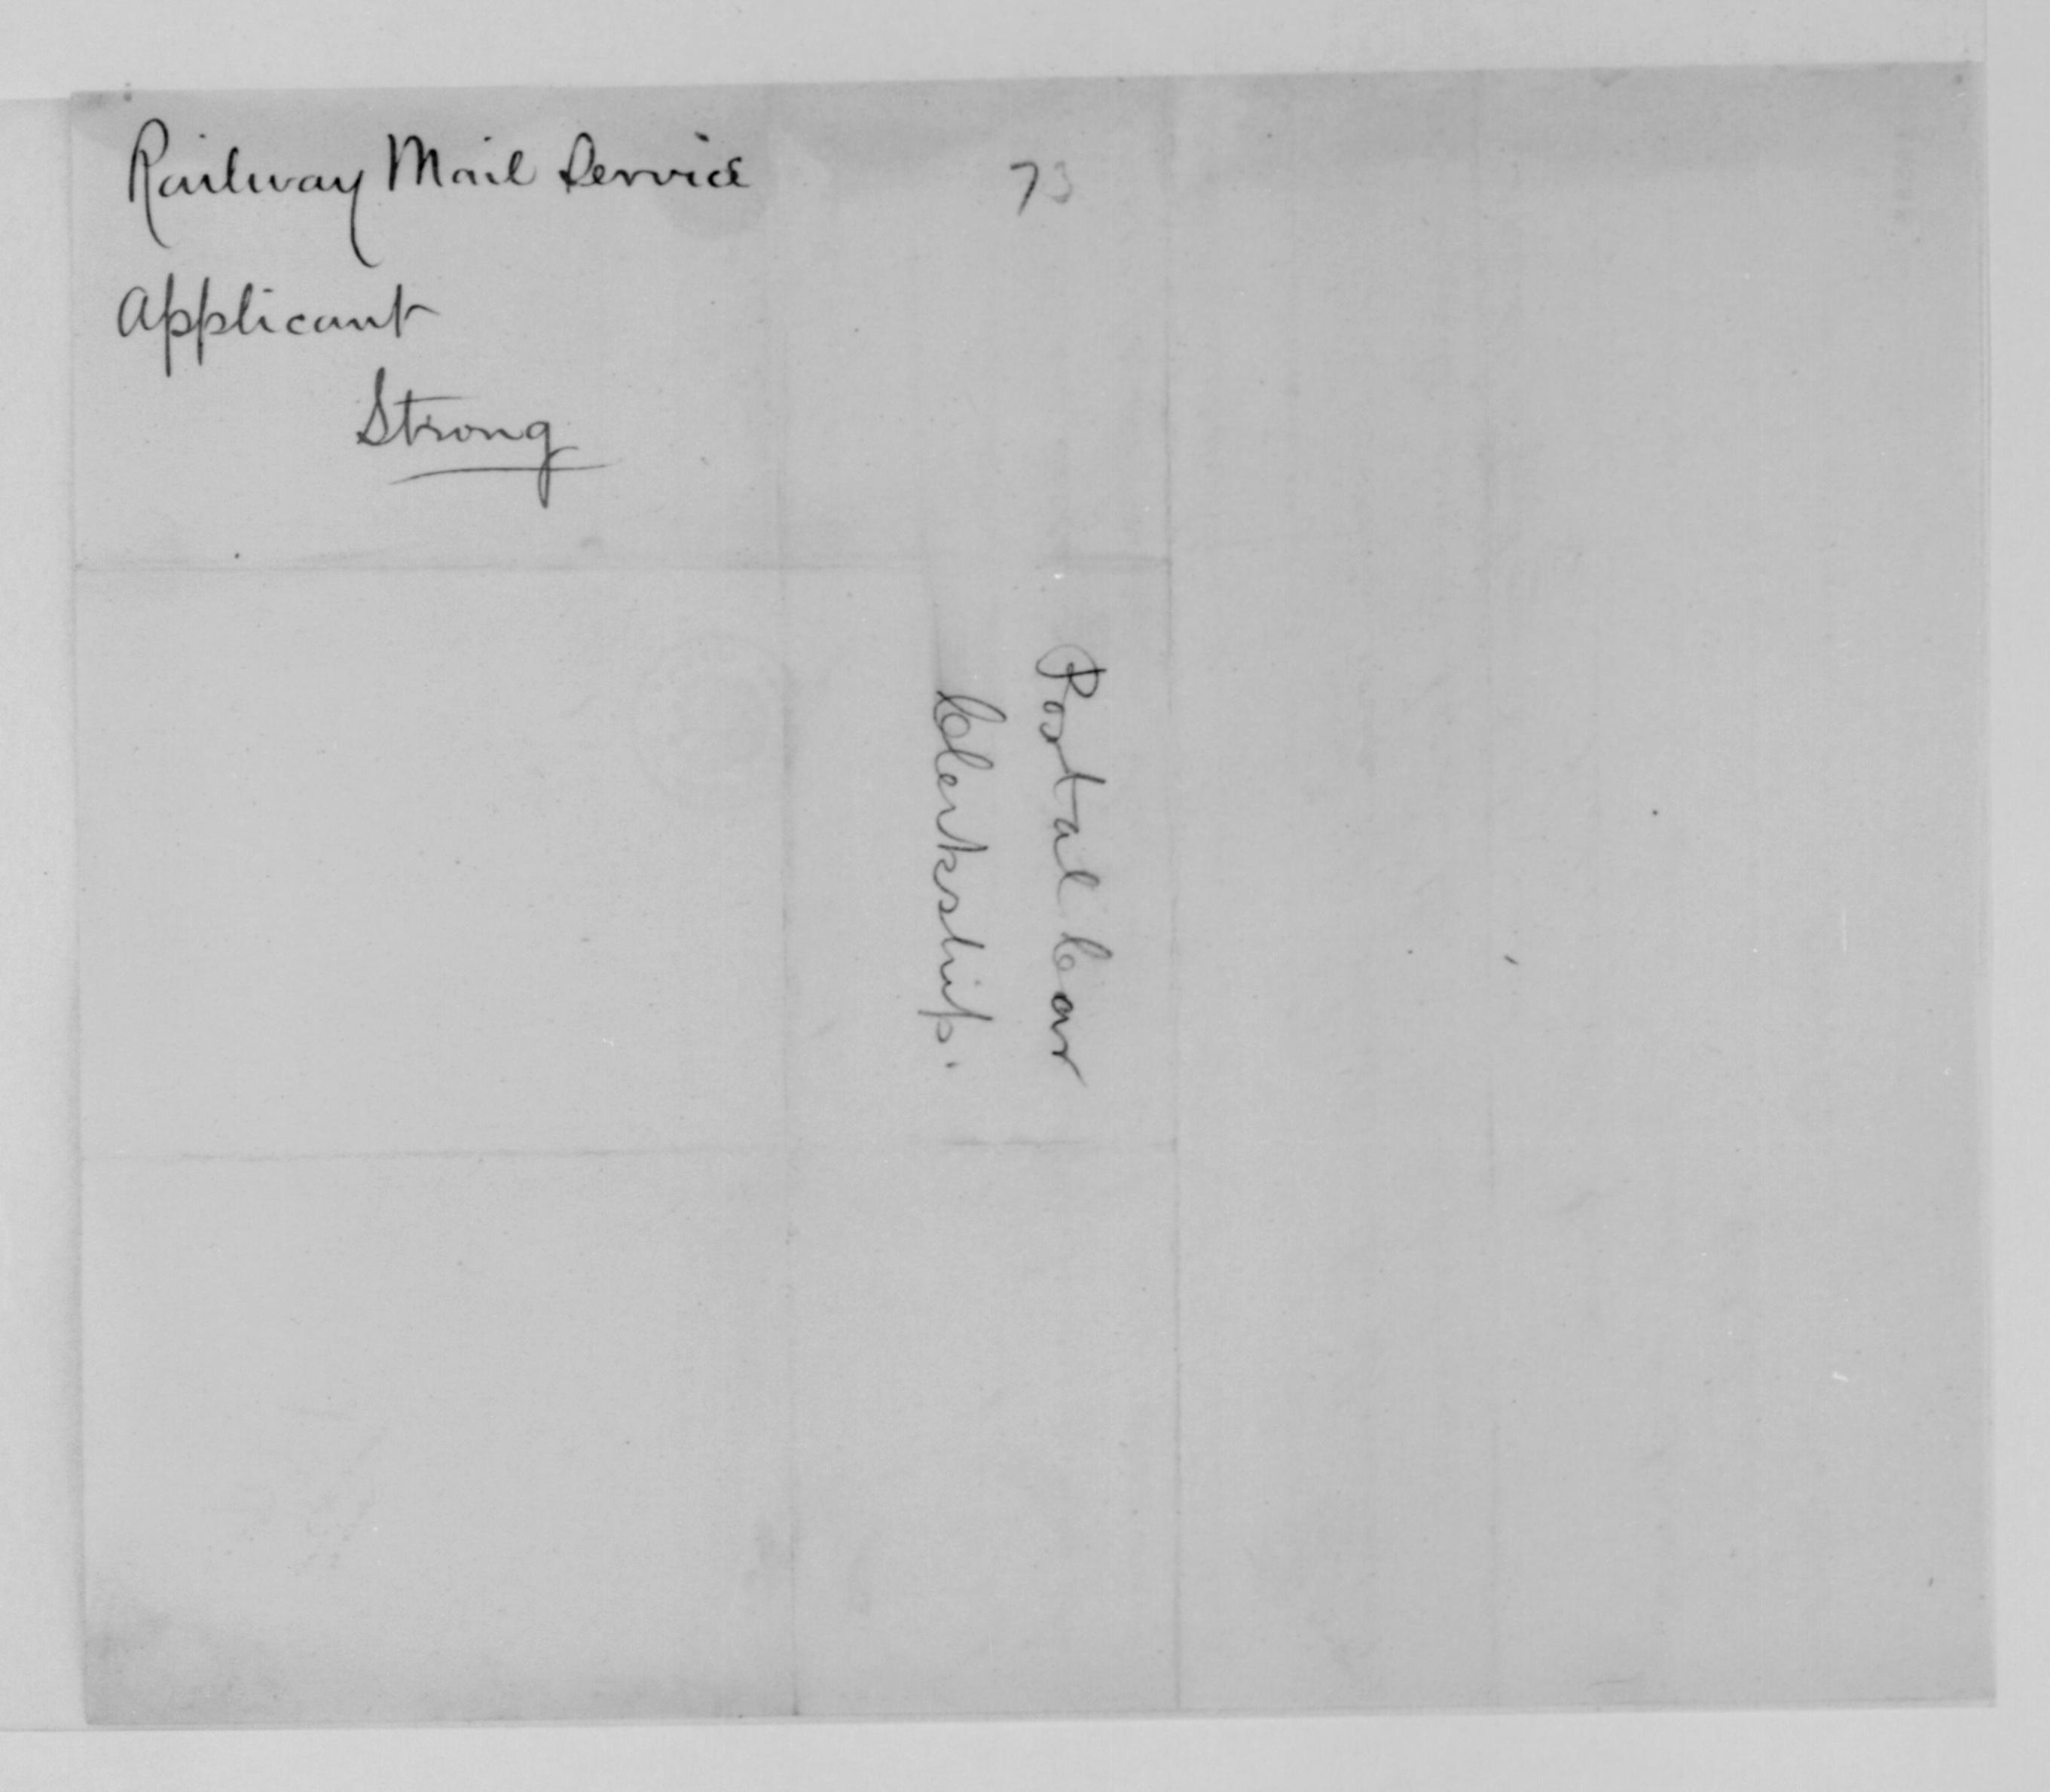 Railway Mail Service
73
Applicant
Strong
Postal Car
Clerkship.